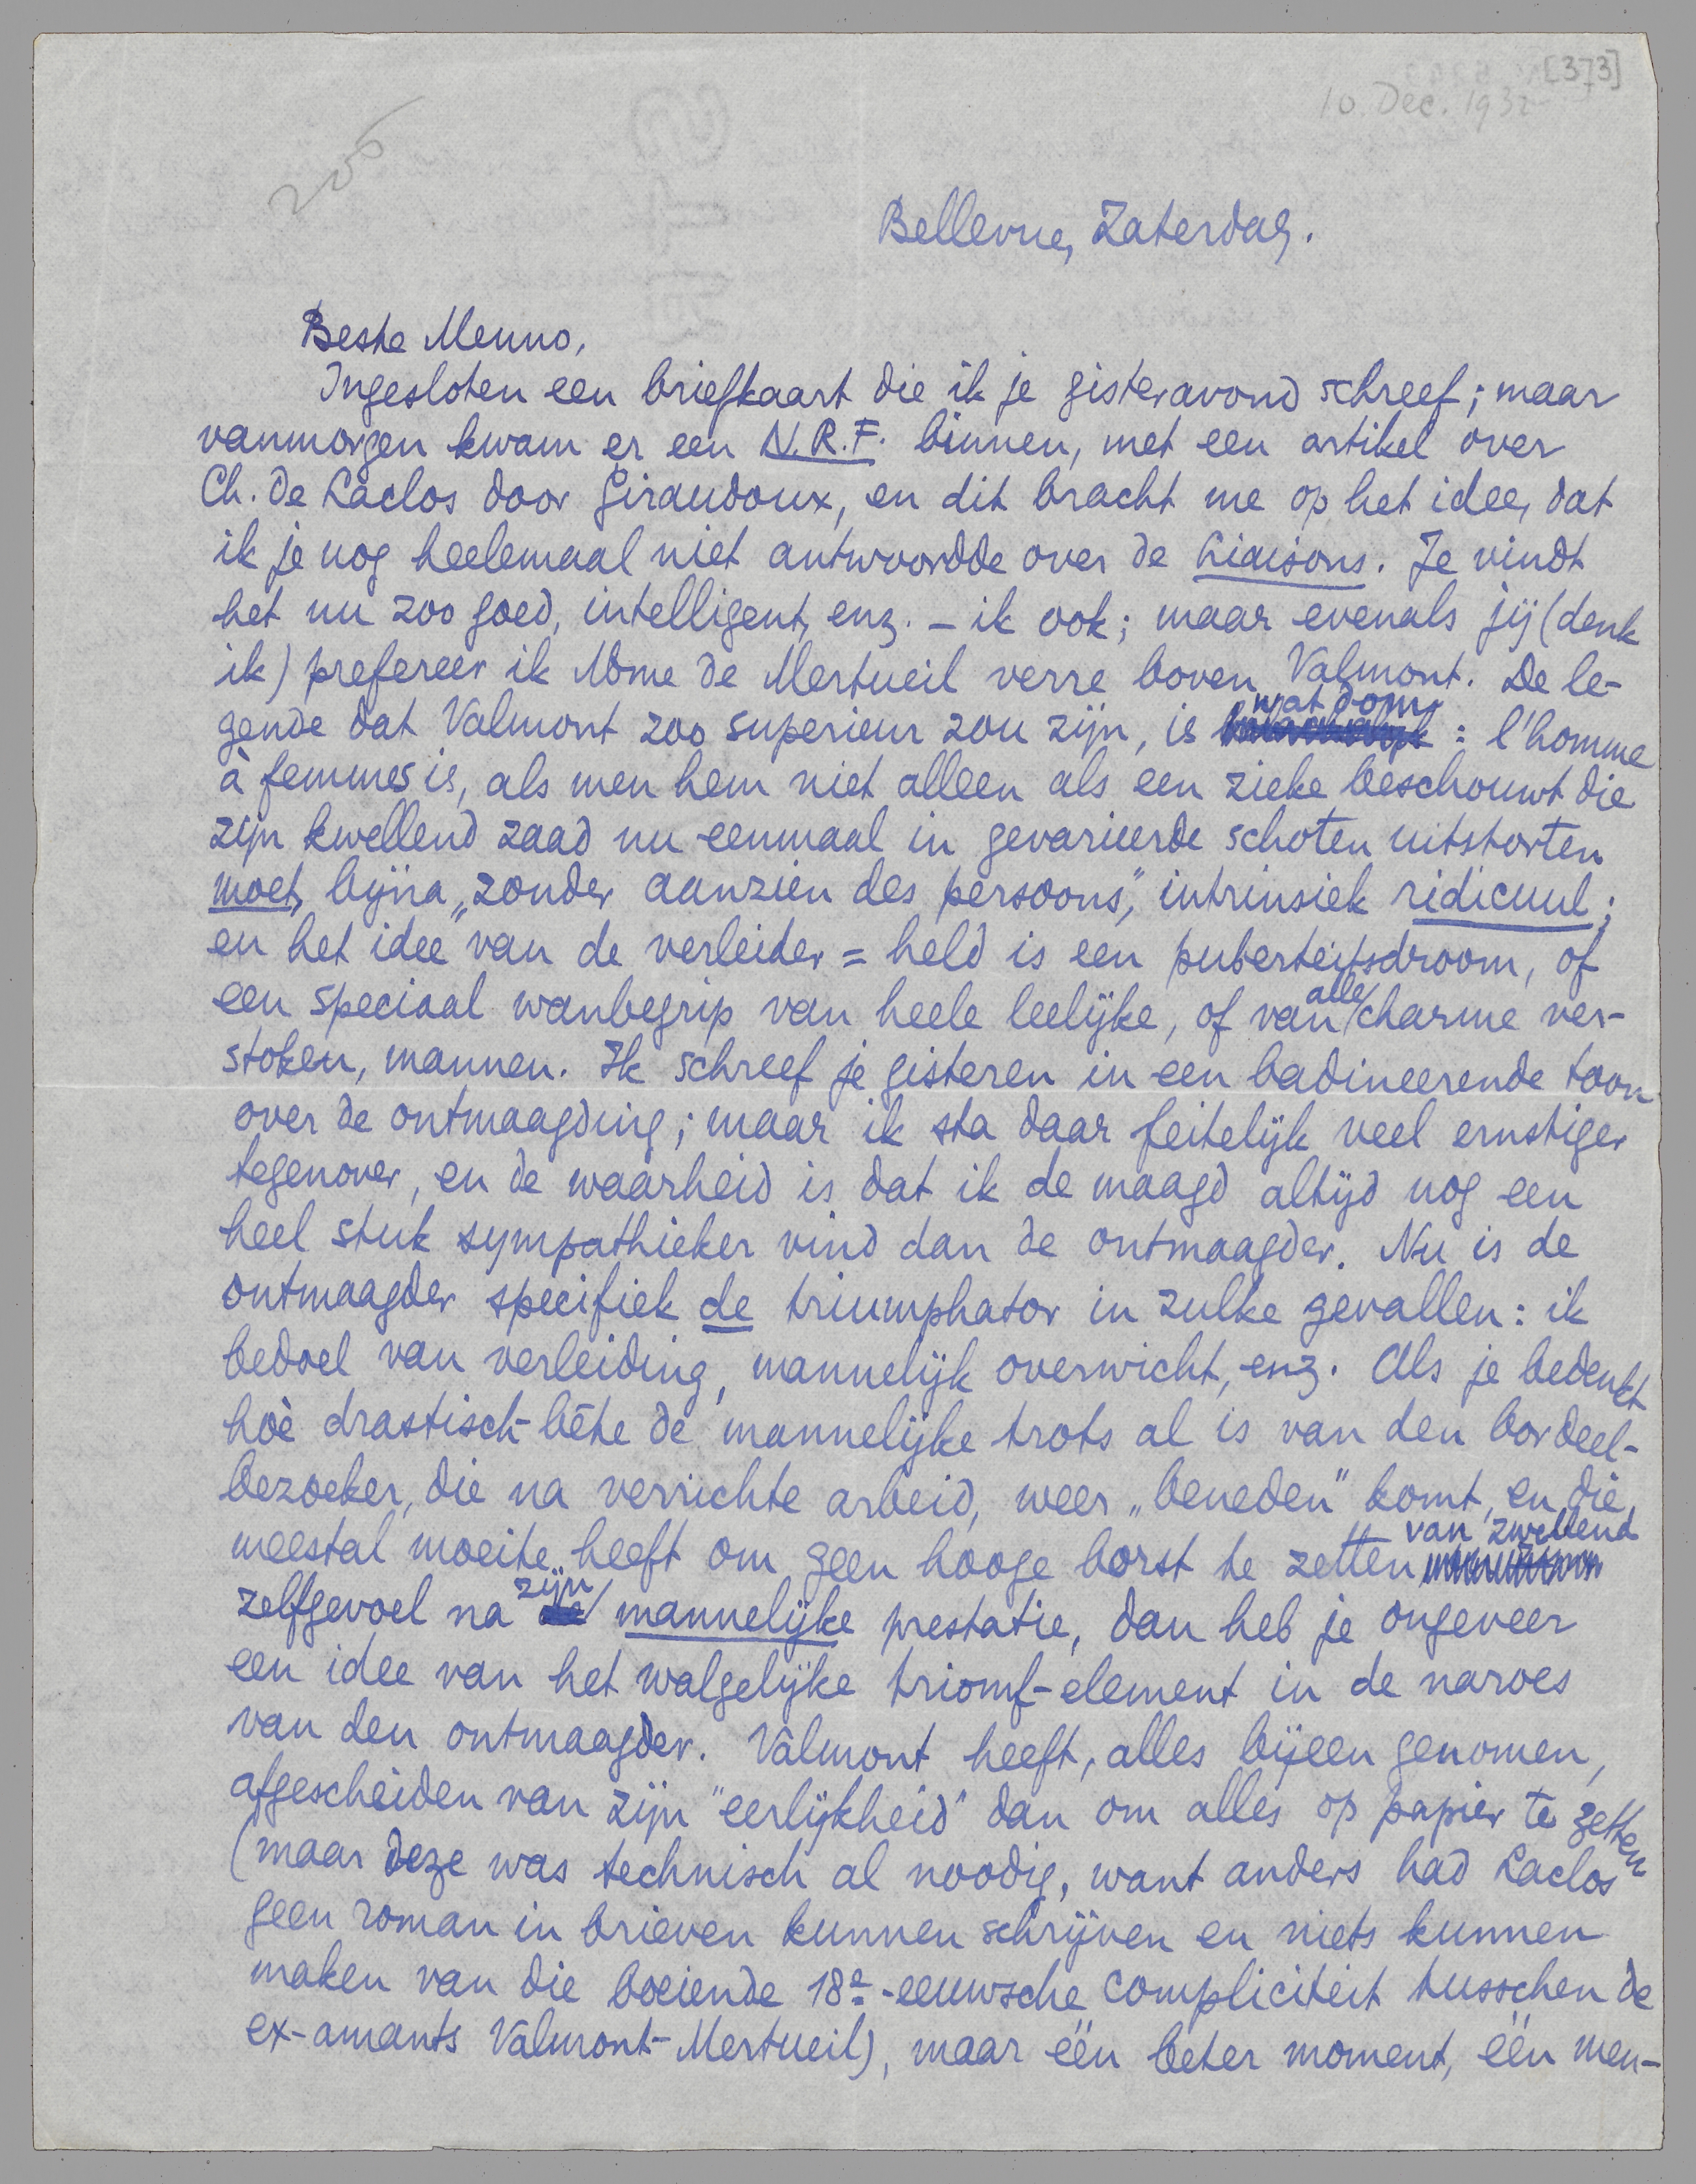 [373]
10. Dec. 1932
Bellevue, Zaterdag.
Beste Menno,
Ingesloten een briefkaart die ik je gisteravond schreef; maar
vanmorgen kwam er een N.R.F. binnen, met een artikel over
Ch. de Laclos door Giraudoux, en dit bracht me op het idee, dat
ik je nog heelemaal niet antwoordde over de Liaisons. Je vindt
het nu zoo goed, intelligent, enz. – ik ook; maar evenals jij (denk
ik) prefereer ik Mme de Merteuil verre boven Valmont. De le-
gende dat Valmont zoo superieur zou zijn, is wat dom : l'homme
à femmes is, als men hem niet alleen als een zieke beschouwt die
zijn kwellend zaad nu eenmaal in gevarieerde schoten uitstorten
moet, bijna „zonder aanzien des persoons", intrinsiek ridicuul;
en het idee van de verleider = held is een puberteitsdroom, of
een speciaal wanbegrip van heele leelijke, of van alle charme ver-
stoken, mannen. Ik schreef je gisteren in een badineerende toon
over de ontmaagding; maar ik sta daar feitelijk veel ernstiger
tegenover, en de waarheid is dat ik de maagd altijd nog een
heel stuk sympathieker vind dan de ontmaagder. Nu is de
ontmaagder specifiek de triumphator in zulke gevallen: ik
bedoel van verleiding, mannelijk overwicht, enz. Als je bedenkt
hoè drastisch-bête de mannelijke trots al is van den bordeel-
bezoeker, die na verrichte arbeid, weer „beneden" komt, en die
meestal moeite heeft om geen hooge borst te zetten van zwellend
zelfgevoel na zijn mannelijke prestatie, dan heb je ongeveer
een idee van het walgelijke triomf-element in de narves
van den ontmaagder. Valmont heeft, alles bijeen genomen,
afgescheiden van zijn "eerlijkheid" dan om alles op papier te zetten
(maar deze was technisch al noodig, want anders had Laclos
geen roman in brieven kunnen schrijven en niets kunnen
maken van die boeiende 18e-eeuwsche compliciteit tusschen de
ex-amants Valmont-Merteuil), maar één beter moment, één men-